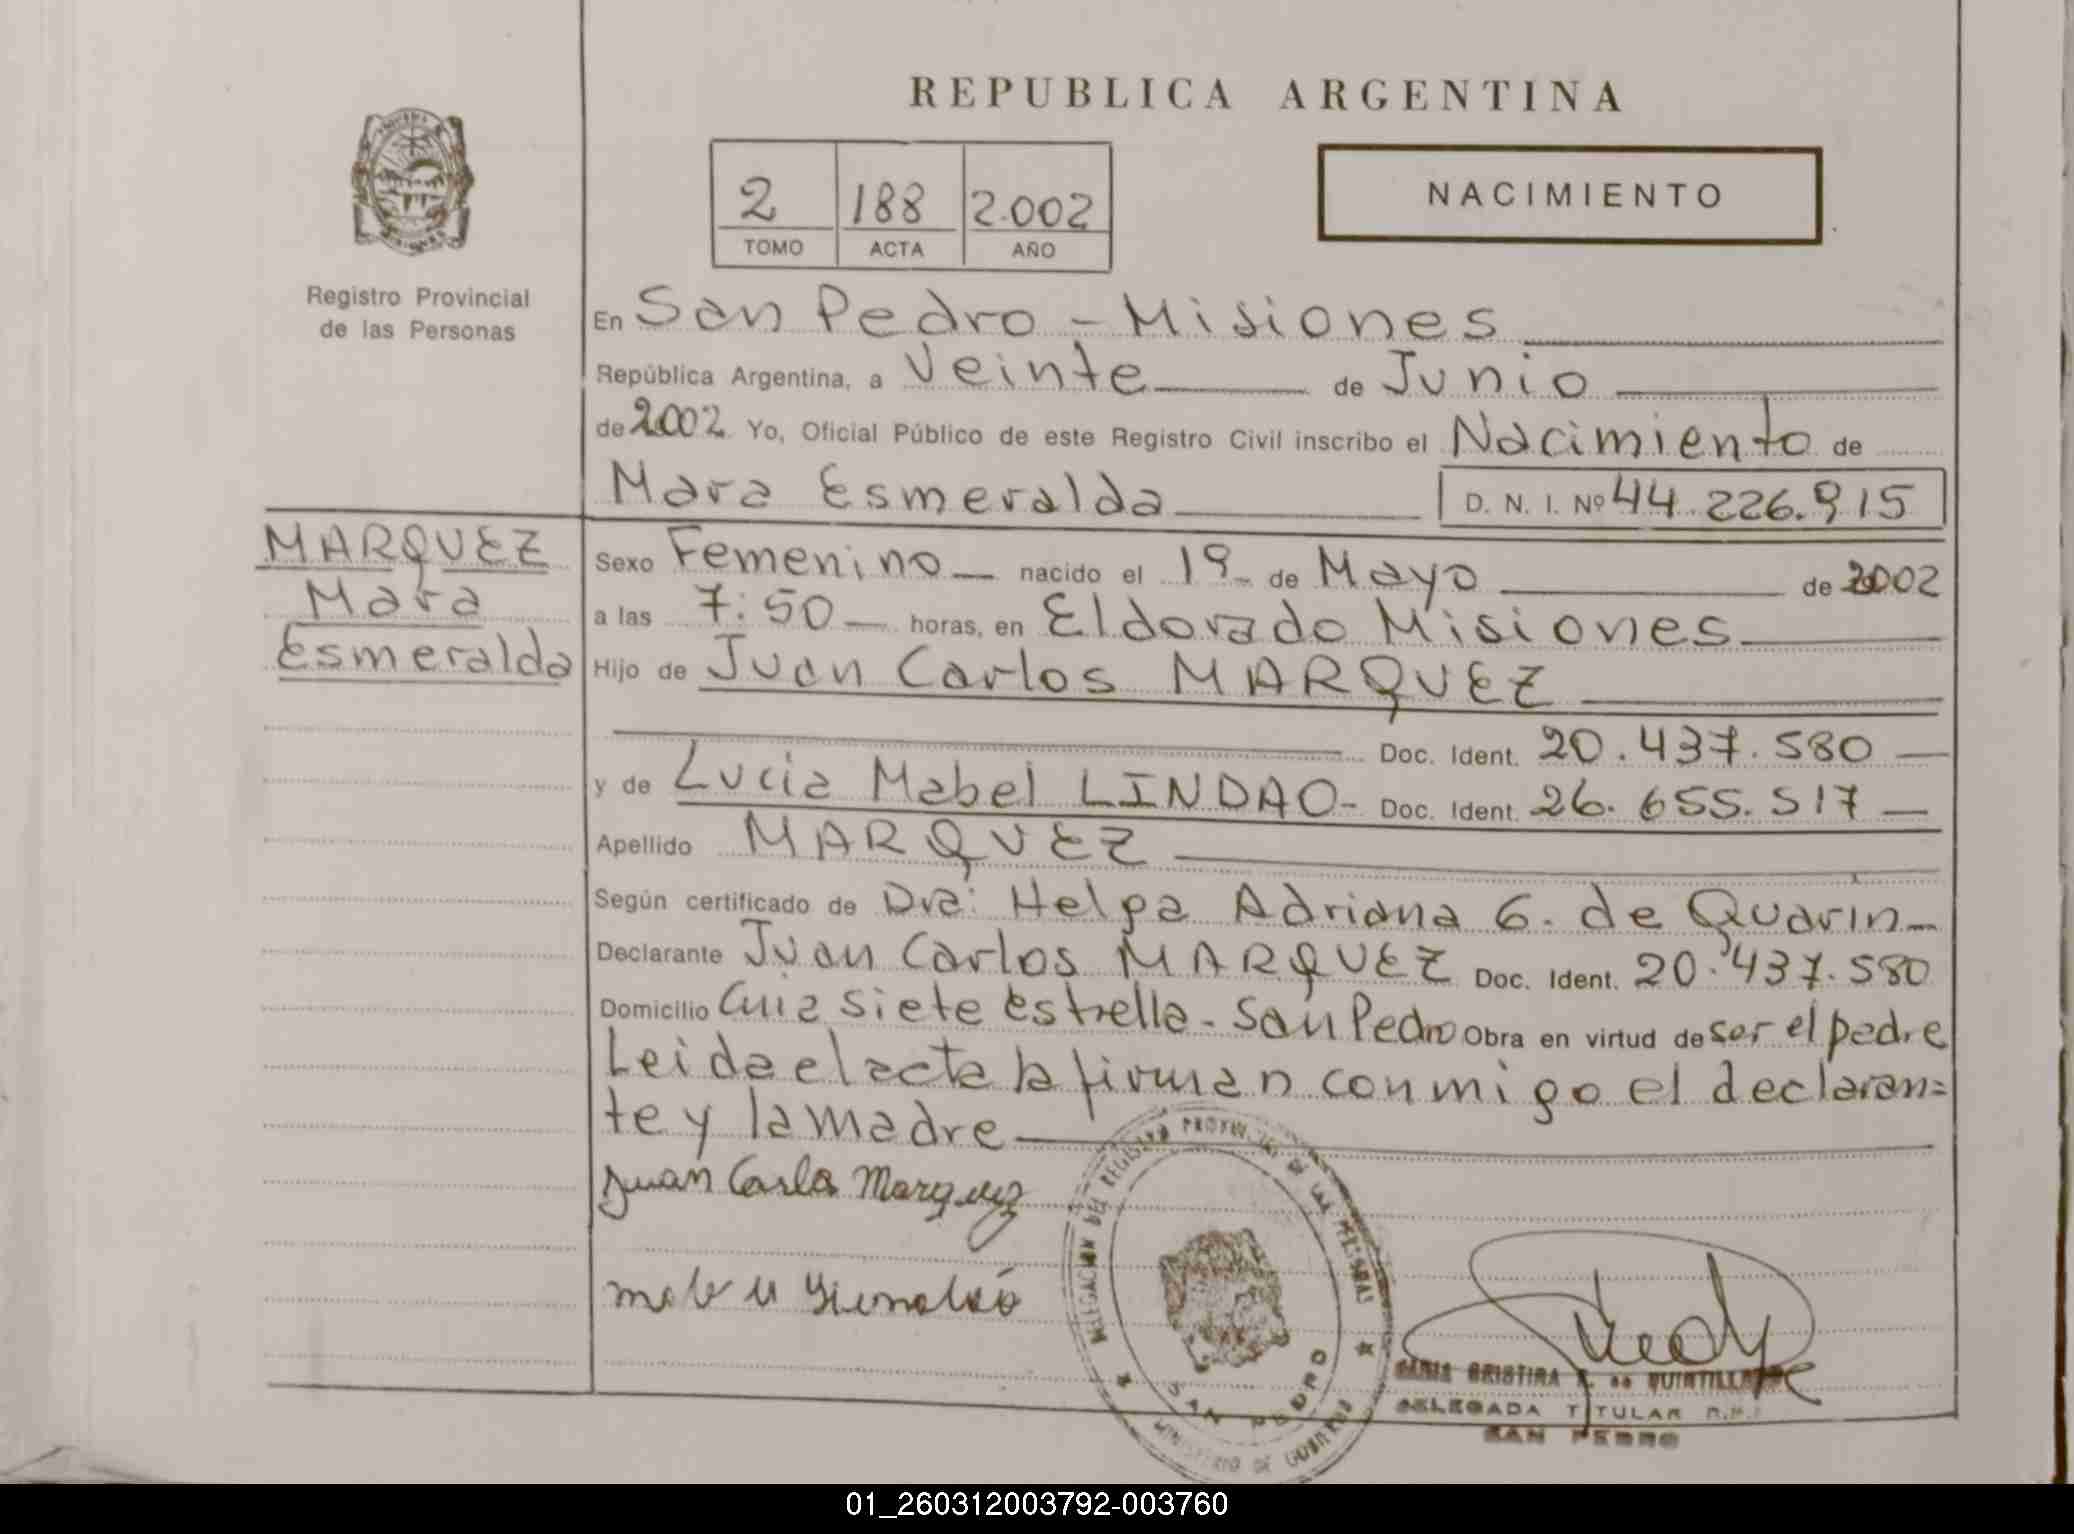 REPUBLICA ARGENTINA
2 188 2.002
TOMO ACTA AÑO
NACIMIENTO
Registro Provincial
de las Personas
En San Pedro - Misiones
República Argentina, a Veinte de Junio
de 2002 Yo, Oficial Público de este Registro Civil inscribo el Nacimiento de
Mara Esmeralda D. N. I. Nº 44.226.915
MARQUEZ
Mara
Esmeralda
Sexo Femenino nacido el 19 de Mayo de 2002
a las 7:50 horas, en Eldorado Misiones
Hijo de Juan Carlos MARQUEZ
Doc. Ident. 20.437.580
y de Lucia Mabel LINDAO- Doc. Ident. 26.655.517
Apellido MARQUEZ
Según certificado de Dra: Helga Adriana G. de Quarin
Declarante Juan Carlos MARQUEZ Doc. Ident. 20.437.580
Domicilio siete estrella - San Pedro Obra en virtud de ser el padre
Leida el acta la firman conmigo el declaran=
te y la madre
Juan Carlos Marquez
DELEGACION DEL REGISTRO PROVINCIAL DE LAS PERSONAS
SAN PEDRO
MINISTERIO DE GOBIERNO
CRISTINA DE
DELEGADA TITULAR R.P.
SAN PEDRO
01_260312003792-003760